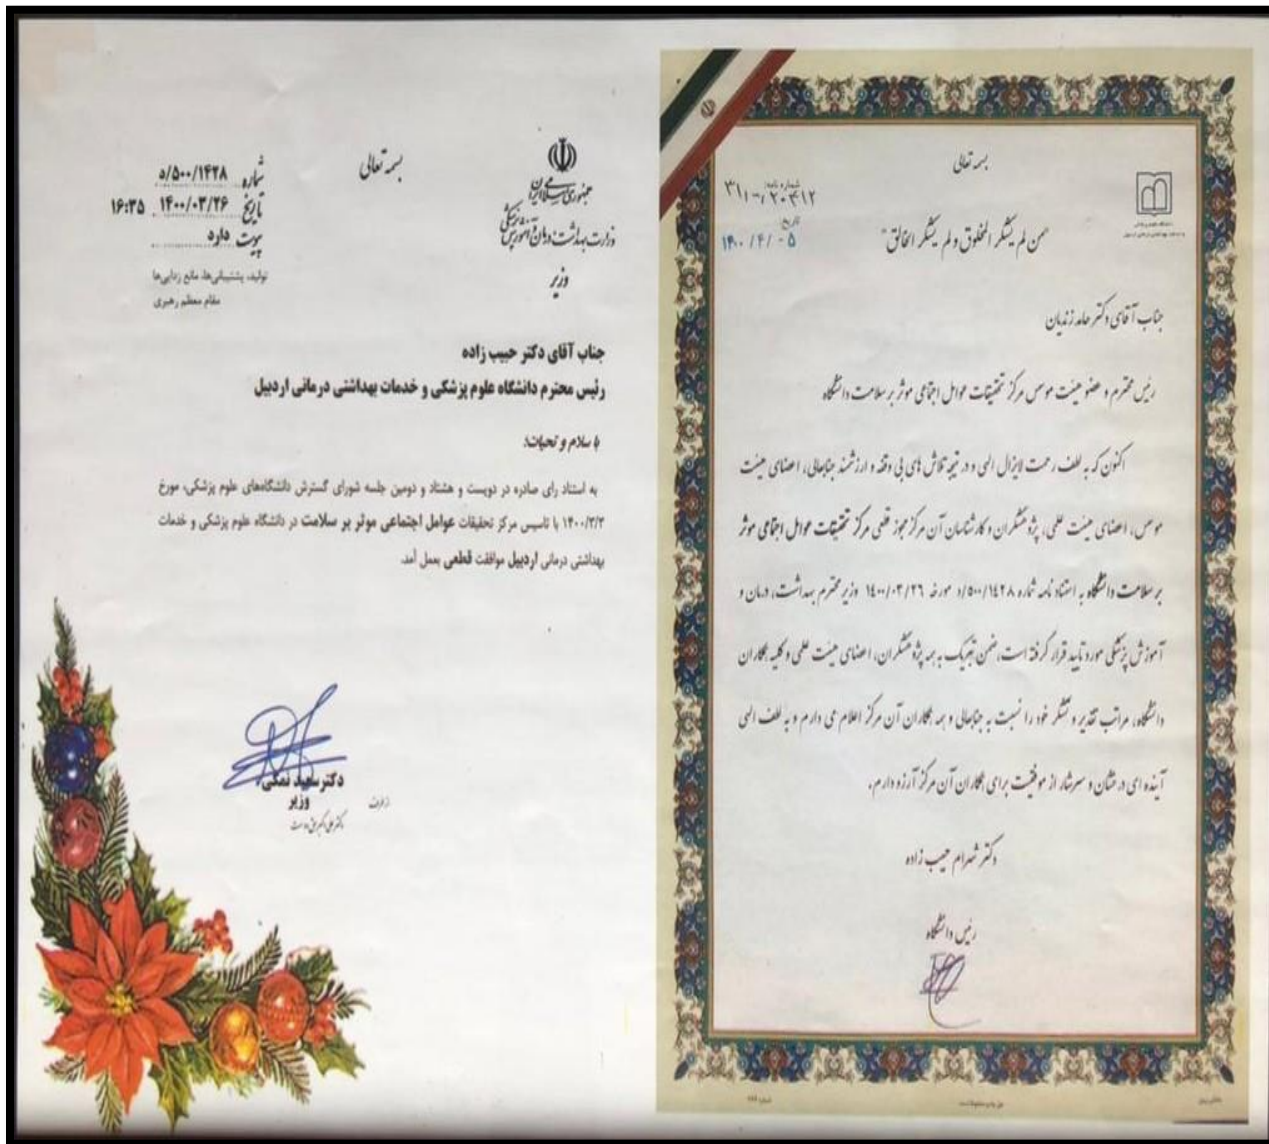 بسمه تعالی
شماره نامه: ۳۱۱-/۲۰۴۱۲
تاریخ: ۱۴۰۰/۴/۰۵
"من لم یشکر المخلوق و لم یشکر الخالق"
جناب آقای دکتر حامد زندیان
رئیس محترم و عضو هیئت موسس مرکز تحقیقات عوامل اجتماعی موثر بر سلامت دانشگاه
اکنون که به لطف رحمت لایزال الهی و در نتیجه تلاش های بی وقفه و ارزشمند جنابعالی، اعضای هیئت
موسس، اعضای هیئت علمی، پژوهشگران و کارشناسان آن مرکز مجوز قطعی مرکز تحقیقات عوامل اجتماعی موثر
بر سلامت دانشگاه به استناد نامه شماره ۵۰۰/۱۴۲۸/د مورخه ۱۴۰۰/۰۳/۲۶ وزیر محترم بهداشت، درمان و
آموزش پزشکی مورد تایید قرار گرفته است، ضمن تبریک به همه پژوهشگران، اعضای هیئت علمی و کلیه همکاران
دانشگاه، مراتب تقدیر و تشکر خود را نسبت به جنابعالی و همه همکاران آن مرکز اعلام می دارم و به لطف الهی
آینده ای درخشان و سرشار از موفقیت برای همکاران آن مرکز آرزو دارم.
دکتر شهرام حبیب زاده
رئیس دانشگاه
جمهوری اسلامی ایران
وزارت بهداشت، درمان و آموزش پزشکی
وزیر
بسمه تعالی
شماره ۵۰۰/۱۴۲۸/د
تاریخ ۱۴۰۰/۰۳/۲۶ ۱۶:۳۵
پیوست دارد
تولید، پشتیبانی‌ها، مانع زدایی‌ها
مقام معظم رهبری
جناب آقای دکتر حبیب زاده
رئیس محترم دانشگاه علوم پزشکی و خدمات بهداشتی درمانی اردبیل
با سلام و تحیات؛
به استناد رای صادره در دویست و هشتاد و دومین جلسه شورای گسترش دانشگاه‌های علوم پزشکی، مورخ
۱۴۰۰/۳/۳ با تاسیس مرکز تحقیقات عوامل اجتماعی موثر بر سلامت در دانشگاه علوم پزشکی و خدمات
بهداشتی درمانی اردبیل موافقت قطعی بعمل آمد.
دکتر سعید نمکی
وزیر
از طرف